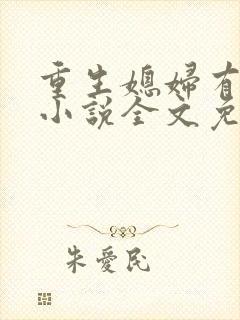 重生媳婦有
小說全文免
朱愛民